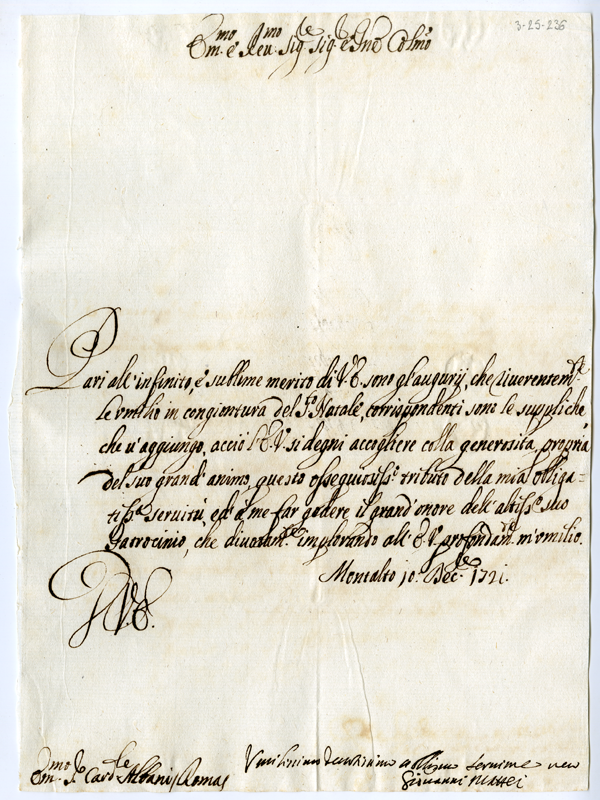 3-25-236
Em.mo e Reu.mo Sig.re Sig.re e Pne Colmo
Pari all'infinito, e sublime merito di V.E. sono gl'augurij, che riuerentem.te
Le vmilio in congiontura del S.to Natale, corrispondenti sono le suppliche
che u'aggiungo, acciò l'E.V. si degni accogliere colla generosità propria
del suo grand'animo, questo ossequiosiss.o tributo della mia obliga=
tiss.a seruitù, ed à me far godere il grand'onore dell'altiss.o suo
Patrocinio, che diuotam.te implorando all'E.V. profondam.te m'vmilio.
Montalto 10. Xbre 1721.
D.V.E.
Em.mo S.r Card.le Albani / Roma /
Vmilissimo deuotissimo obligmo seruime vero
Giouanni Mattei